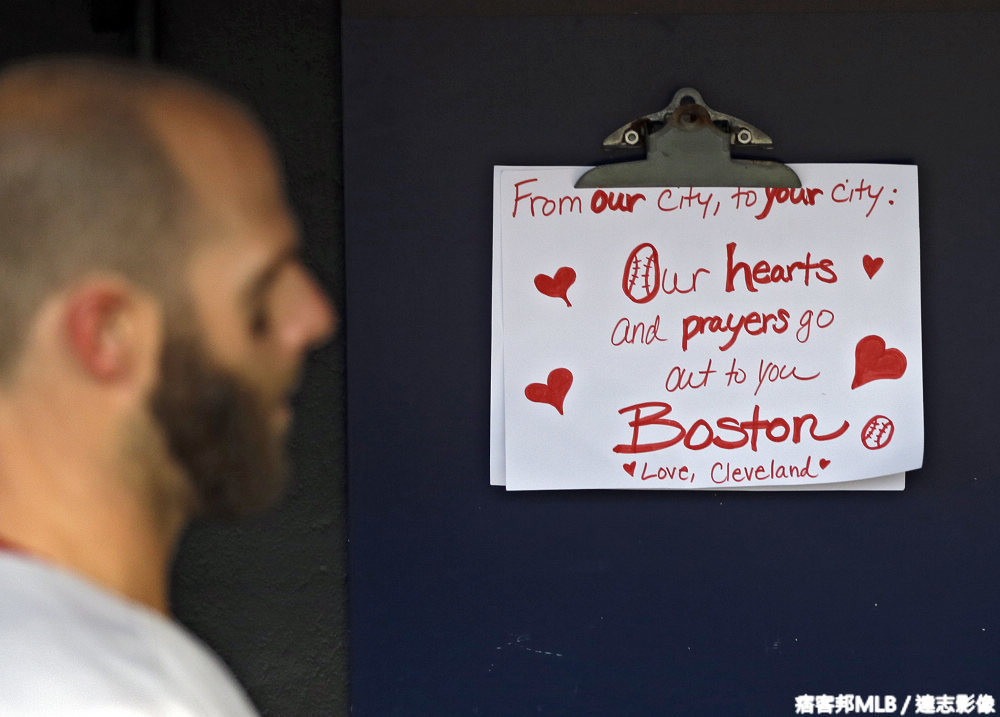 From our city, to your city:
Our hearts
and prayers go
out to you
Boston
Love, Cleveland
痞客邦MLB / 達志影像